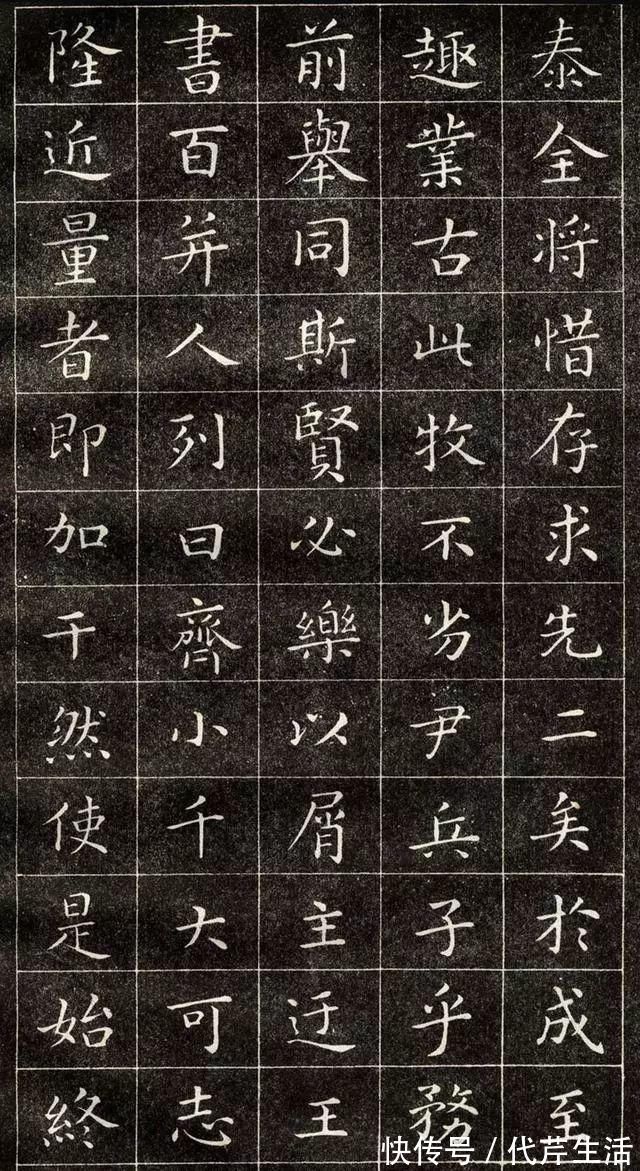 泰全将惜存求先二矣於成至
趣業古此牧不劣尹兵子乎務
前舉同斯賢必樂以屑主迂王
書百并人列曰齊小千大可志
隆近量者即加干然使是始終
快传号/代芹生活